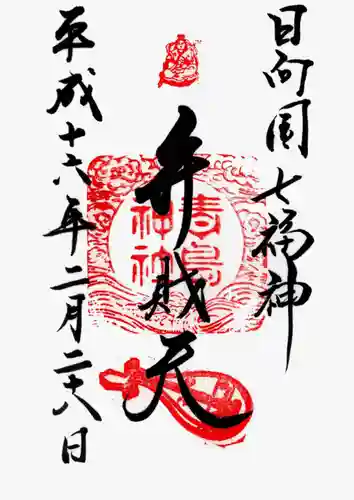 日向国七福神
弁財天
青島神社
平成十六年二月二十八日